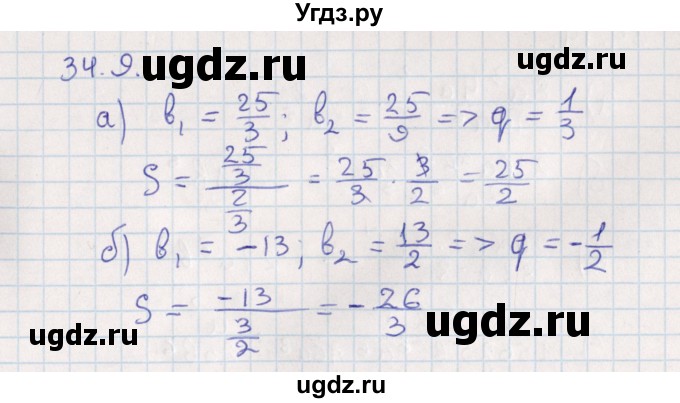 Угдз.ру
34.9.
ugdz.ru
ugdz.ru
а) b₁ = 25/3; b₂ = 25/9 => q = 1/3
S = (25/3)/(2/3) = 25/3 · 3/2 = 25/2
б) b₁ = -13; b₂ = 13/2 => q = -1/2
S = -13/(3/2) = -26/3
ugdz.ru
ugdz.ru
ugdz.ru